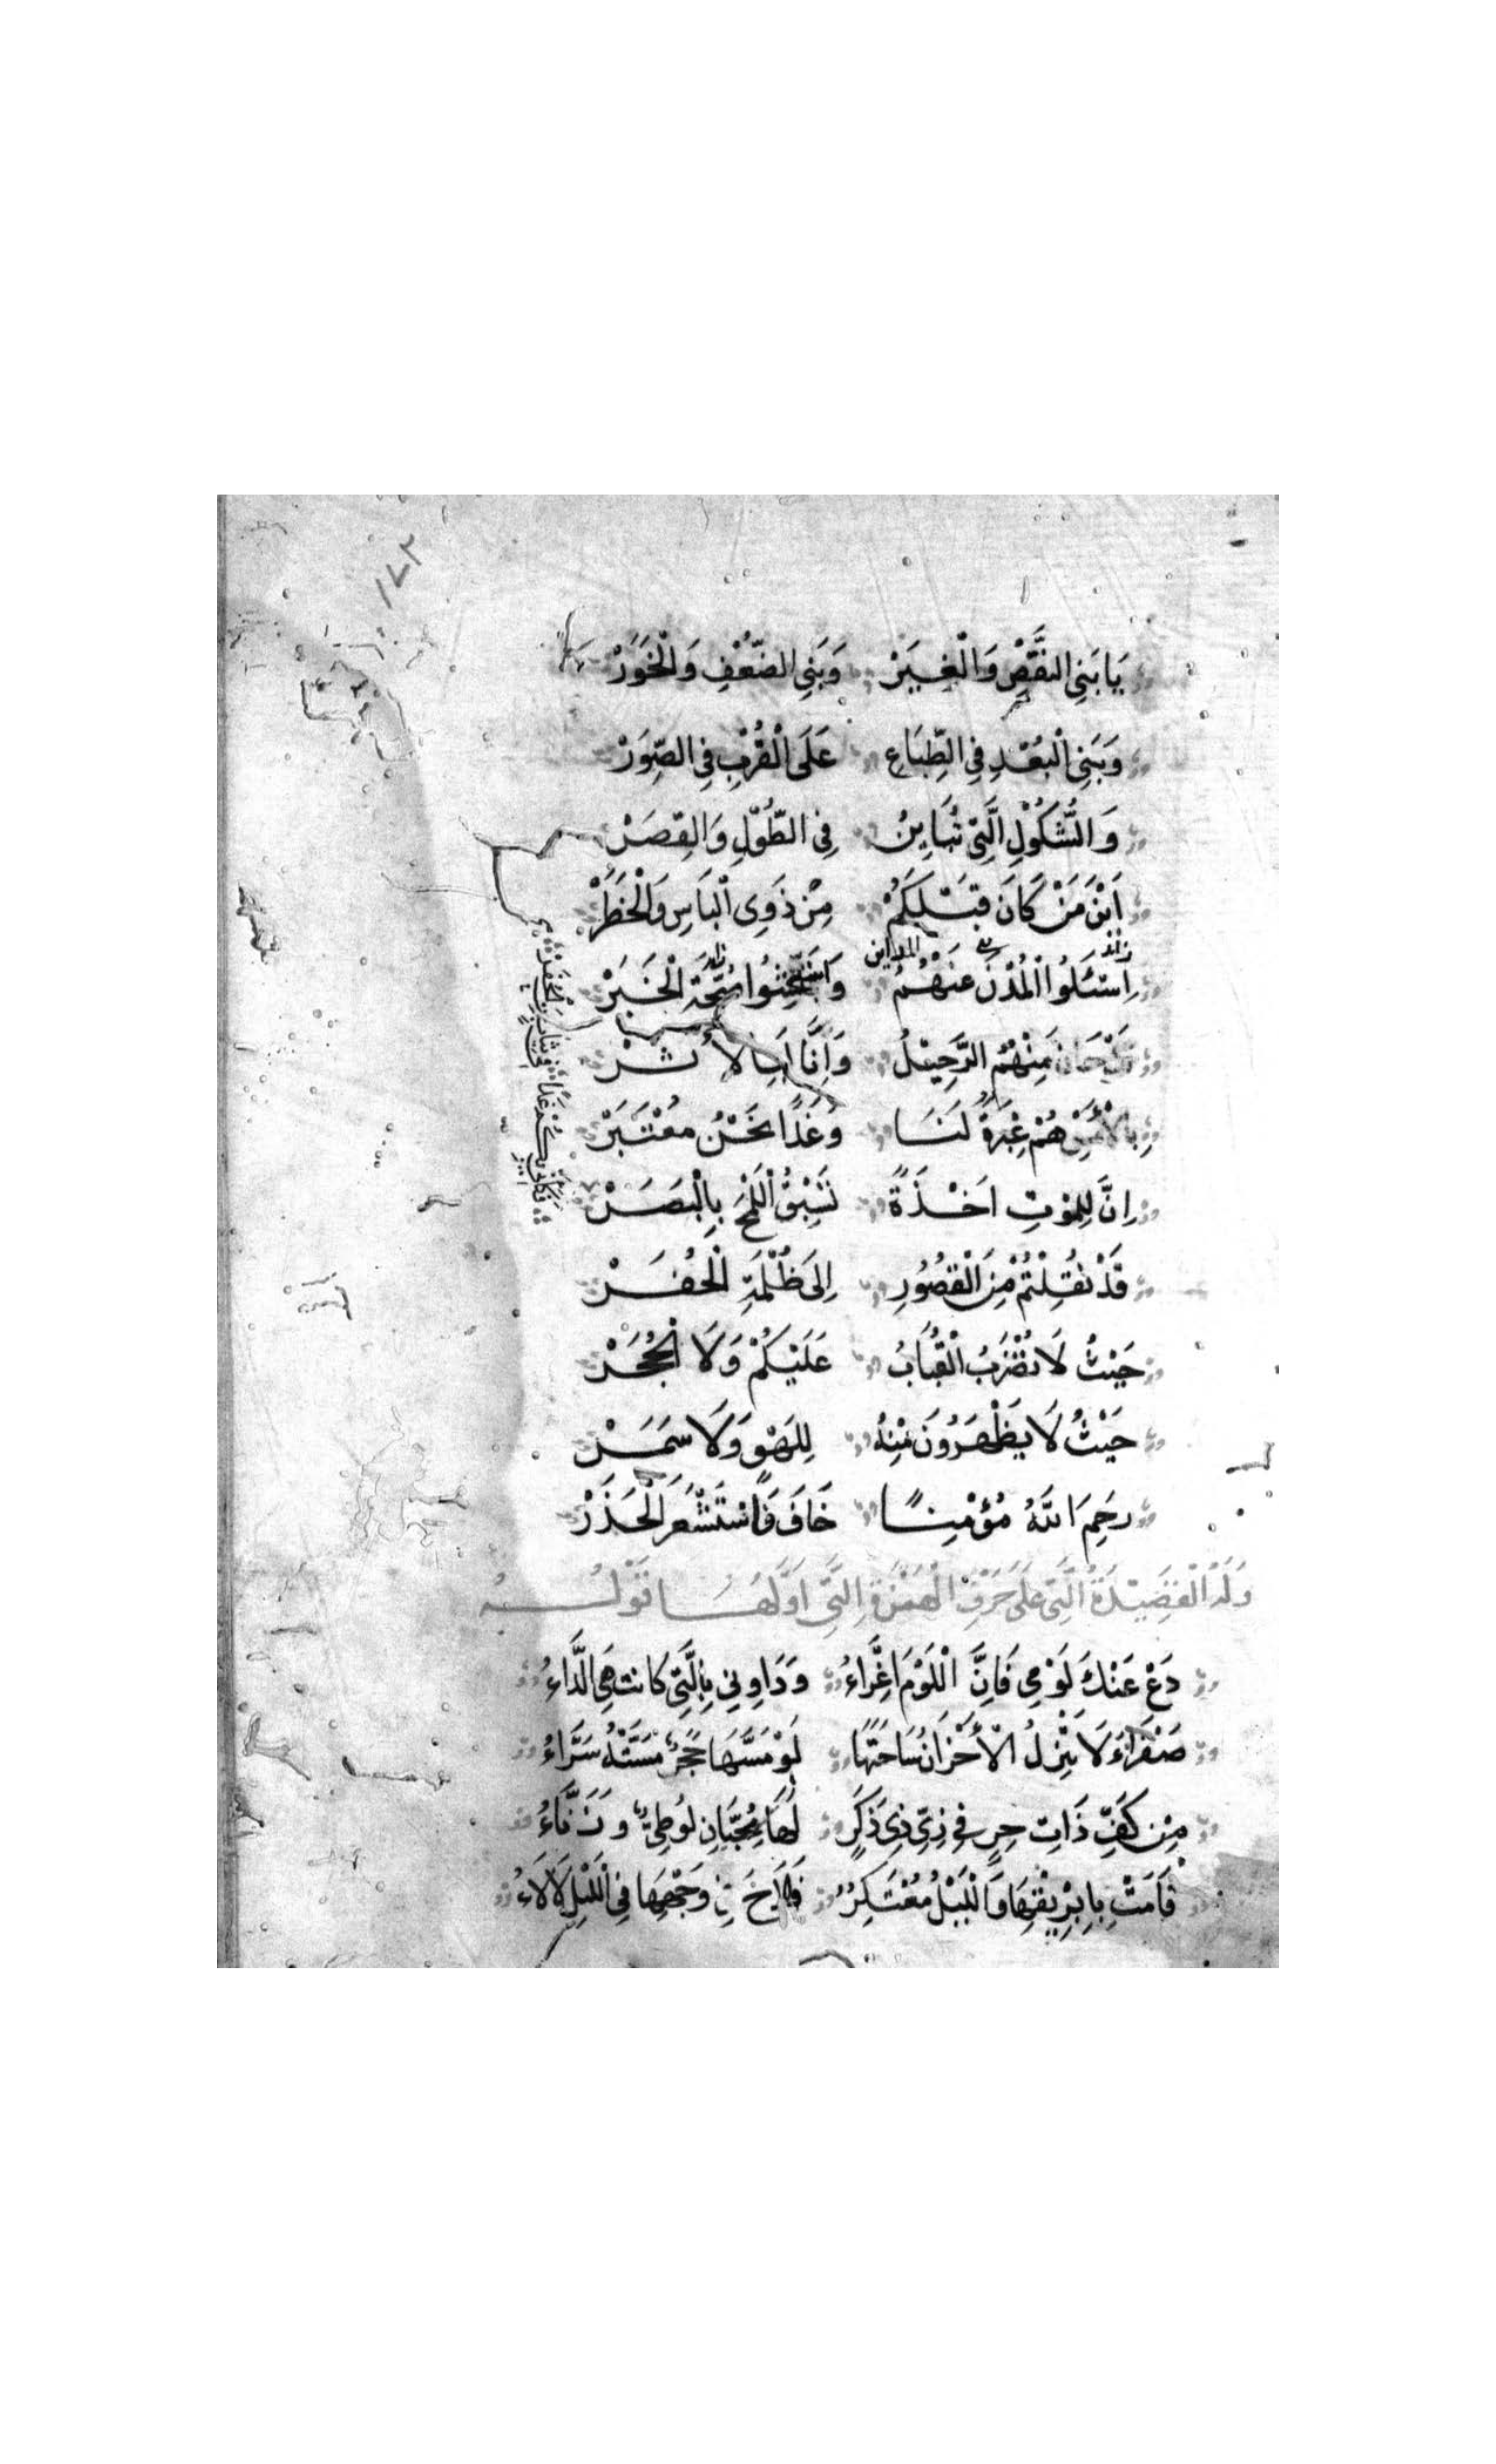 ١٧٢
يَا بَنِي النَّقْصِ وَالْغِيَرْ وَبَنِي الضَّعْفِ وَالْخَوَرْ
وَبَنِي الْبُعْدِ فِي الطِّبَاعِ عَلَى الْقُرْبِ فِي الصِّوَرْ
وَالشُّكُوْلِ الَّتِي تُبَايِنُ فِي الطُّوْلِ وَالقِصَرْ
اَيْنَ مَنْ كَانَ قَبْلَكُمْ مِنْ ذَوِي الْبَاسِ وَالْخَطَرْ
اِسْئَلُوا الْمُدْنَ عَنْهُمُ وَاسْتَبْحِثُوا الْخَبَرْ
المداين
مِنْهُمُ الرَّحِيْلُ وَاِنَّا
بِالْأَمْسِ هُمْ عِبْرَةٌ لَنَا وَغَدًا نَحْنُ مُعْتَبَرْ
اِنَّ لِلمَوْتِ اَخْذَةً تَسْبِقُ اللَّمْحَ بِالْبَصَرْ
فَكَاَنِّي بِكُمْ غَدًا فِي ثِيَابٍ مِنَ
قَدْ نُقِلْتُمْ مِنَ الْقُصُوْرِ اِلَى ظُلْمَةِ الْحُفَرْ
حَيْثُ لَا تُضْرَبُ الْقُبَابُ عَلَيْكُمْ وَلَا الْحُجَرْ
حَيْثُ لَا يَظْهَرُوْنَ مِنْهُ لِلَهْوٍ وَلَا سَمَرْ
رَحِمَ اللَّهُ مُؤْمِنًا خَافَ فَاسْتَشْعَرَ الْحَذَرْ
وَلَهُ الْقَصِيْدَةُ الَّتِي عَلَى حَرْفِ الْهَمْزَةِ الَّتِي اَوَّلُهَا قَوْلُهُ
دَعْ عَنْكَ لَوْمِي فَاِنَّ اللَّوْمَ اِغْرَاءُ وَدَاوِنِي بِالَّتِي كَانَتْ هِيَ الدَّاءُ
صَفْرَاءُ لَا تَنْزِلُ الْأَحْزَانُ سَاحَتَهَا لَوْ مَسَّهَا حَجَرٌ مَسَّتْهُ سَرَّاءُ
مِنْ كَفِّ ذَاتِ حِرٍ فِي زِيِّ ذِي ذَكَرٍ لَهَا مُحِبَّانِ لُوْطِيٌّ وَزَنَّاءُ
قَامَتْ بِاِبْرِيْقِهَا وَاللَّيْلُ مُعْتَكِرٌ فَلَاحَ مِنْ وَجْهِهَا فِي اللَّيْلِ لَأْلَاءُ